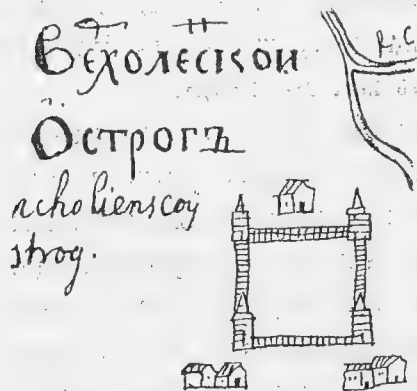 Вехолескои
Острогъ
rcholienscoy
strog.